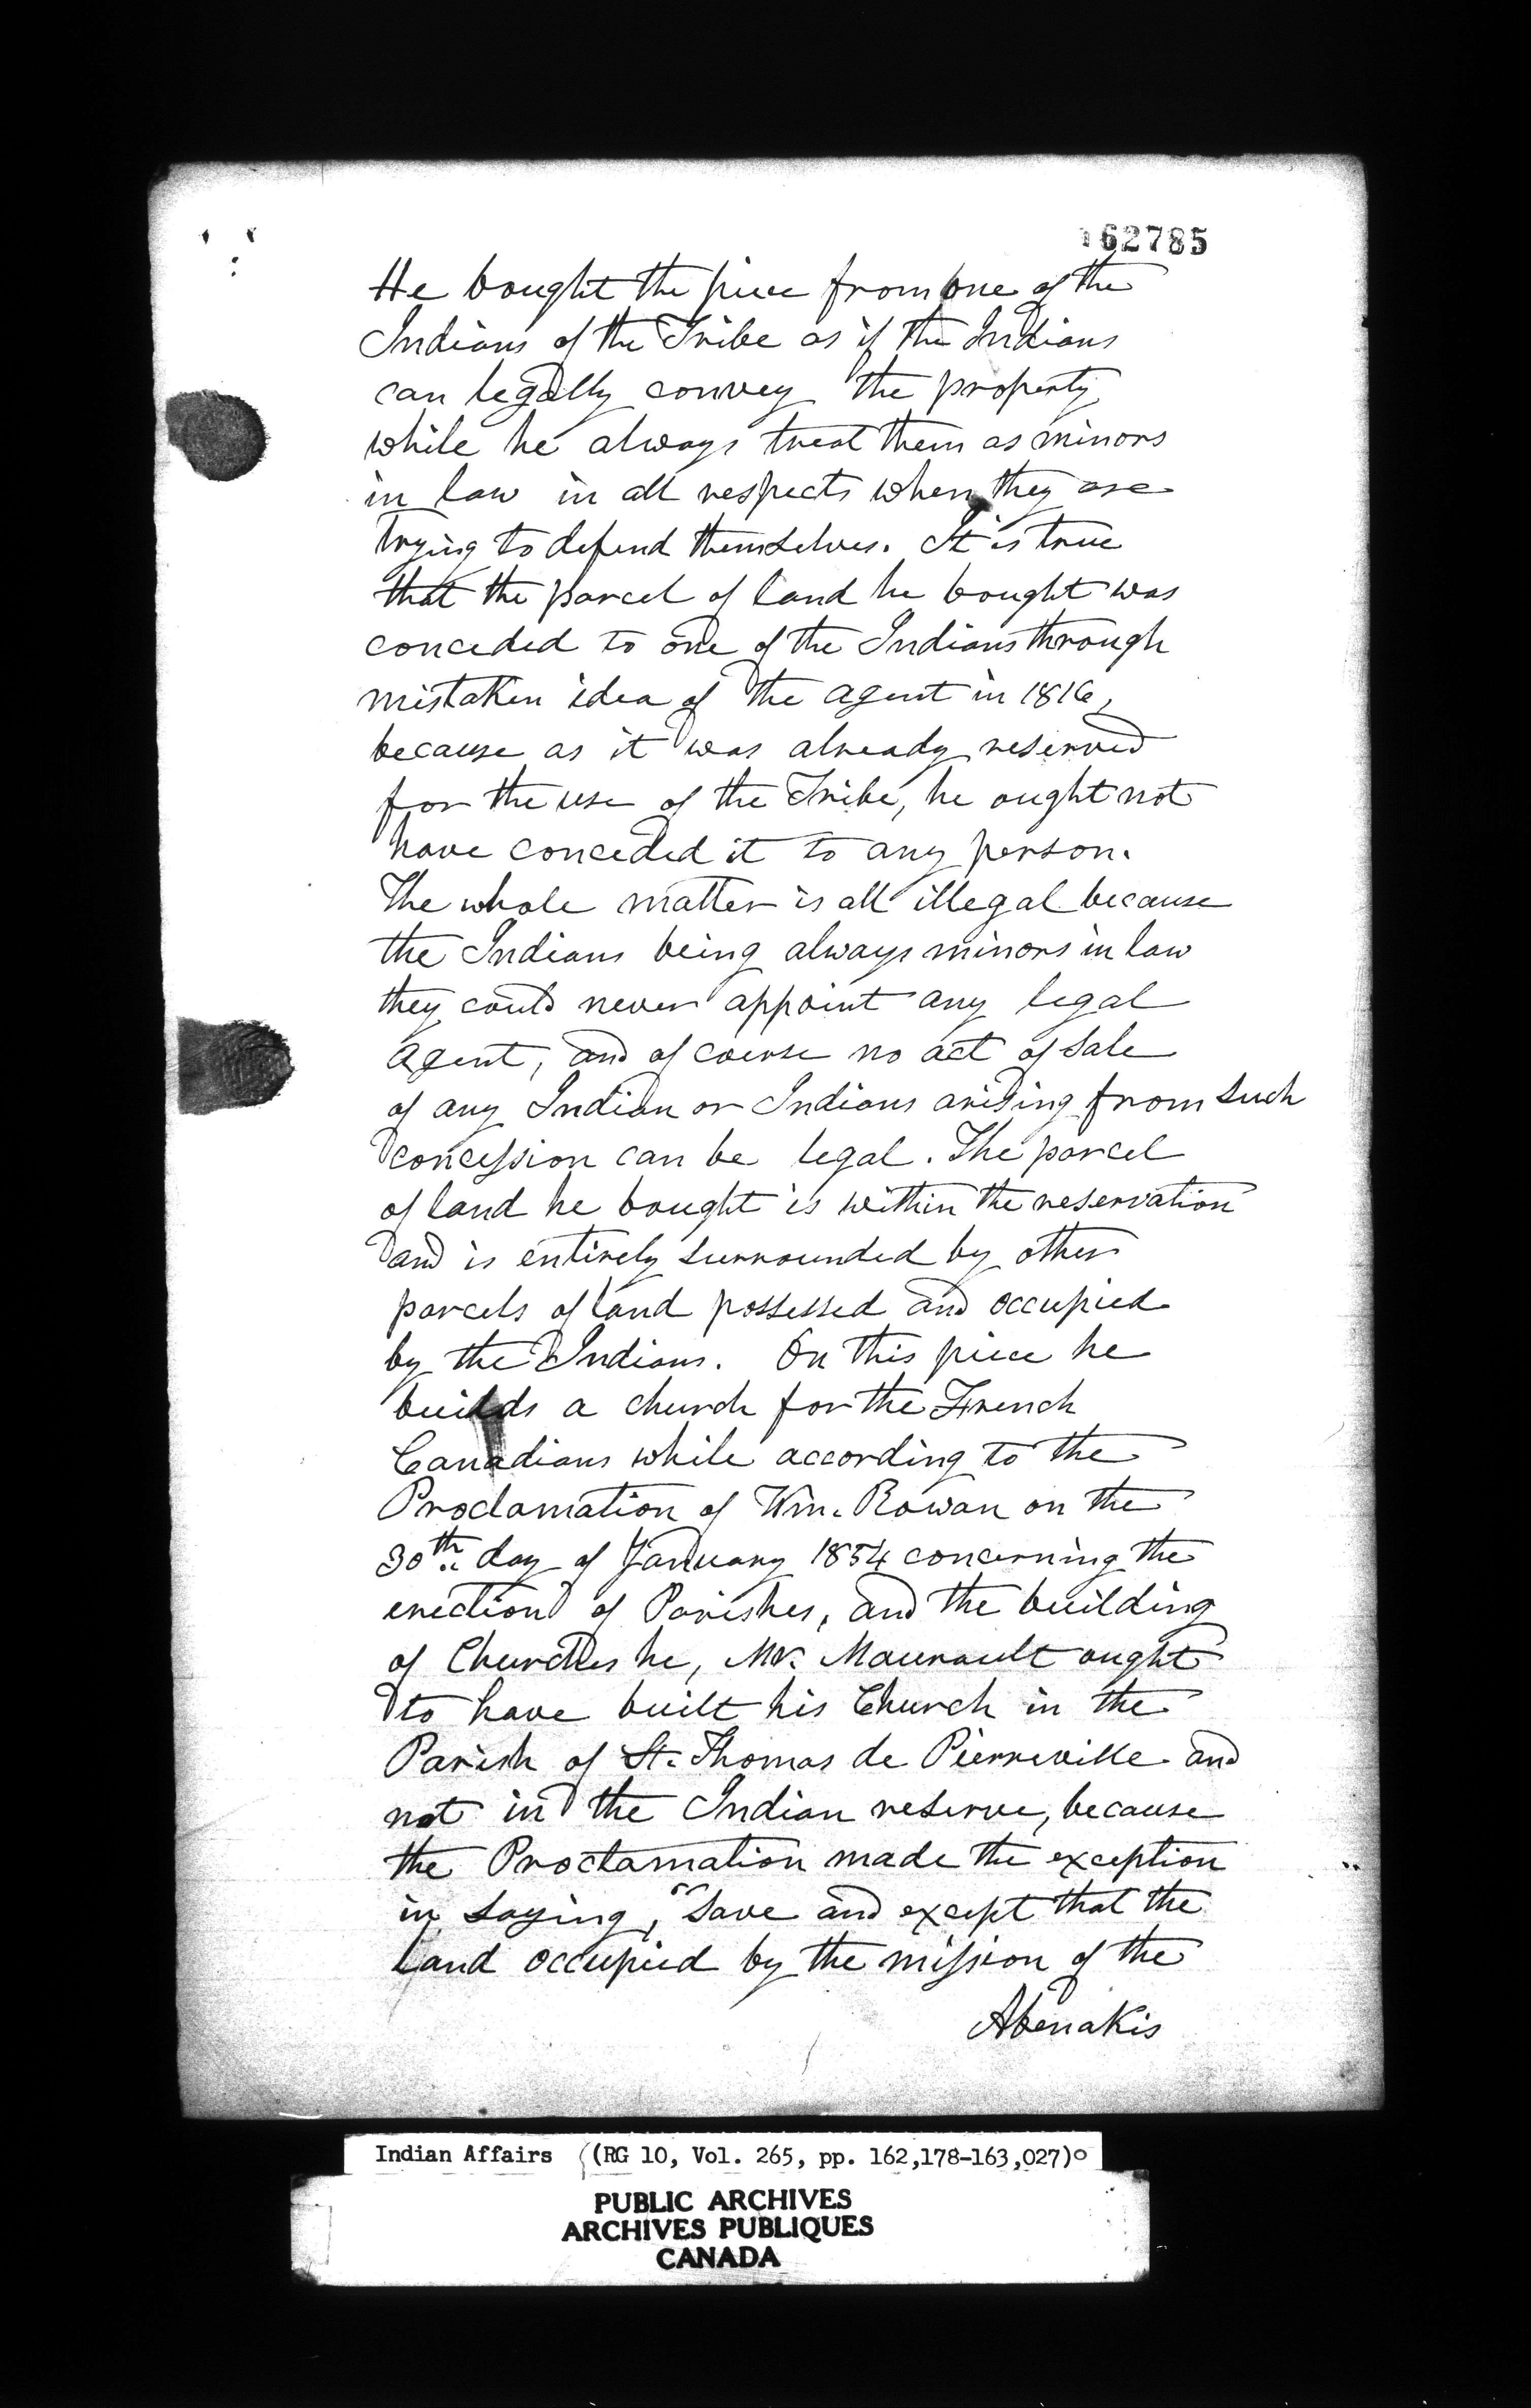 162785
He bought the piece from one of the
Indians of the Tribe as if the Indians
can legally convey the property
while he always treat them as minors
in law in all respects when they are
trying to defend themselves. It is true
that the parcel of land he bought was
conceded to one of the Indians through
mistaken idea of the agent in 1816,
because as it was already reserved
for the use of the Tribe, he ought not
have conceded it to any person.
The whole matter is all illegal because
the Indians being always minors in law
they could never appoint any legal
agent, and of course no act of sale
of any Indian or Indians arising from such
concession can be legal. The parcel
of land he bought is within the reservation
and is entirely surrounded by other
parcels of land possessed and occupied
by the Indians. On this piece he
builds a church for the French
Canadians while according to the
Proclamation of Wm. Rowan on the
30th day of January 1854 concerning the
erection of Parishes, and the building
of Churches he, Mr. Maurault ought
to have built his Church in the
Parish of St. Thomas de Pierreville and
not in the Indian reserve, because
the Proclamation made the exception
in saying, "Save and except that the
land occupied by the mission of the
Abenakis
Indian Affairs (RG 10, Vol. 265, pp. 162,178-163,027)
PUBLIC ARCHIVES
ARCHIVES PUBLIQUES
CANADA